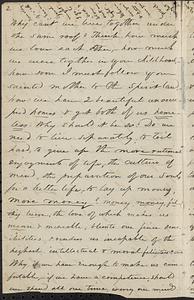 Why can't we live together under
the same roof? Think how much
we love each other, how much
we were together in our childhood
how soon I must follow your
sainted mother to the Spiritland
how we have 2 beautiful
and to get both of us
Why should the
need to live separately, to toil
hard, to give up the more rational
enjoyments of life, the culture of
mind, the preparation of our Souls
for a better life, to lay up money,
more money? money, money,
the love of which makes us
mean & miserable, blunts our finer
, renders us incapable of the
highest intellectual & social felicities
Why if we have enough to make us com
fortable, if we have a competence should
we spend all our time worry our mind